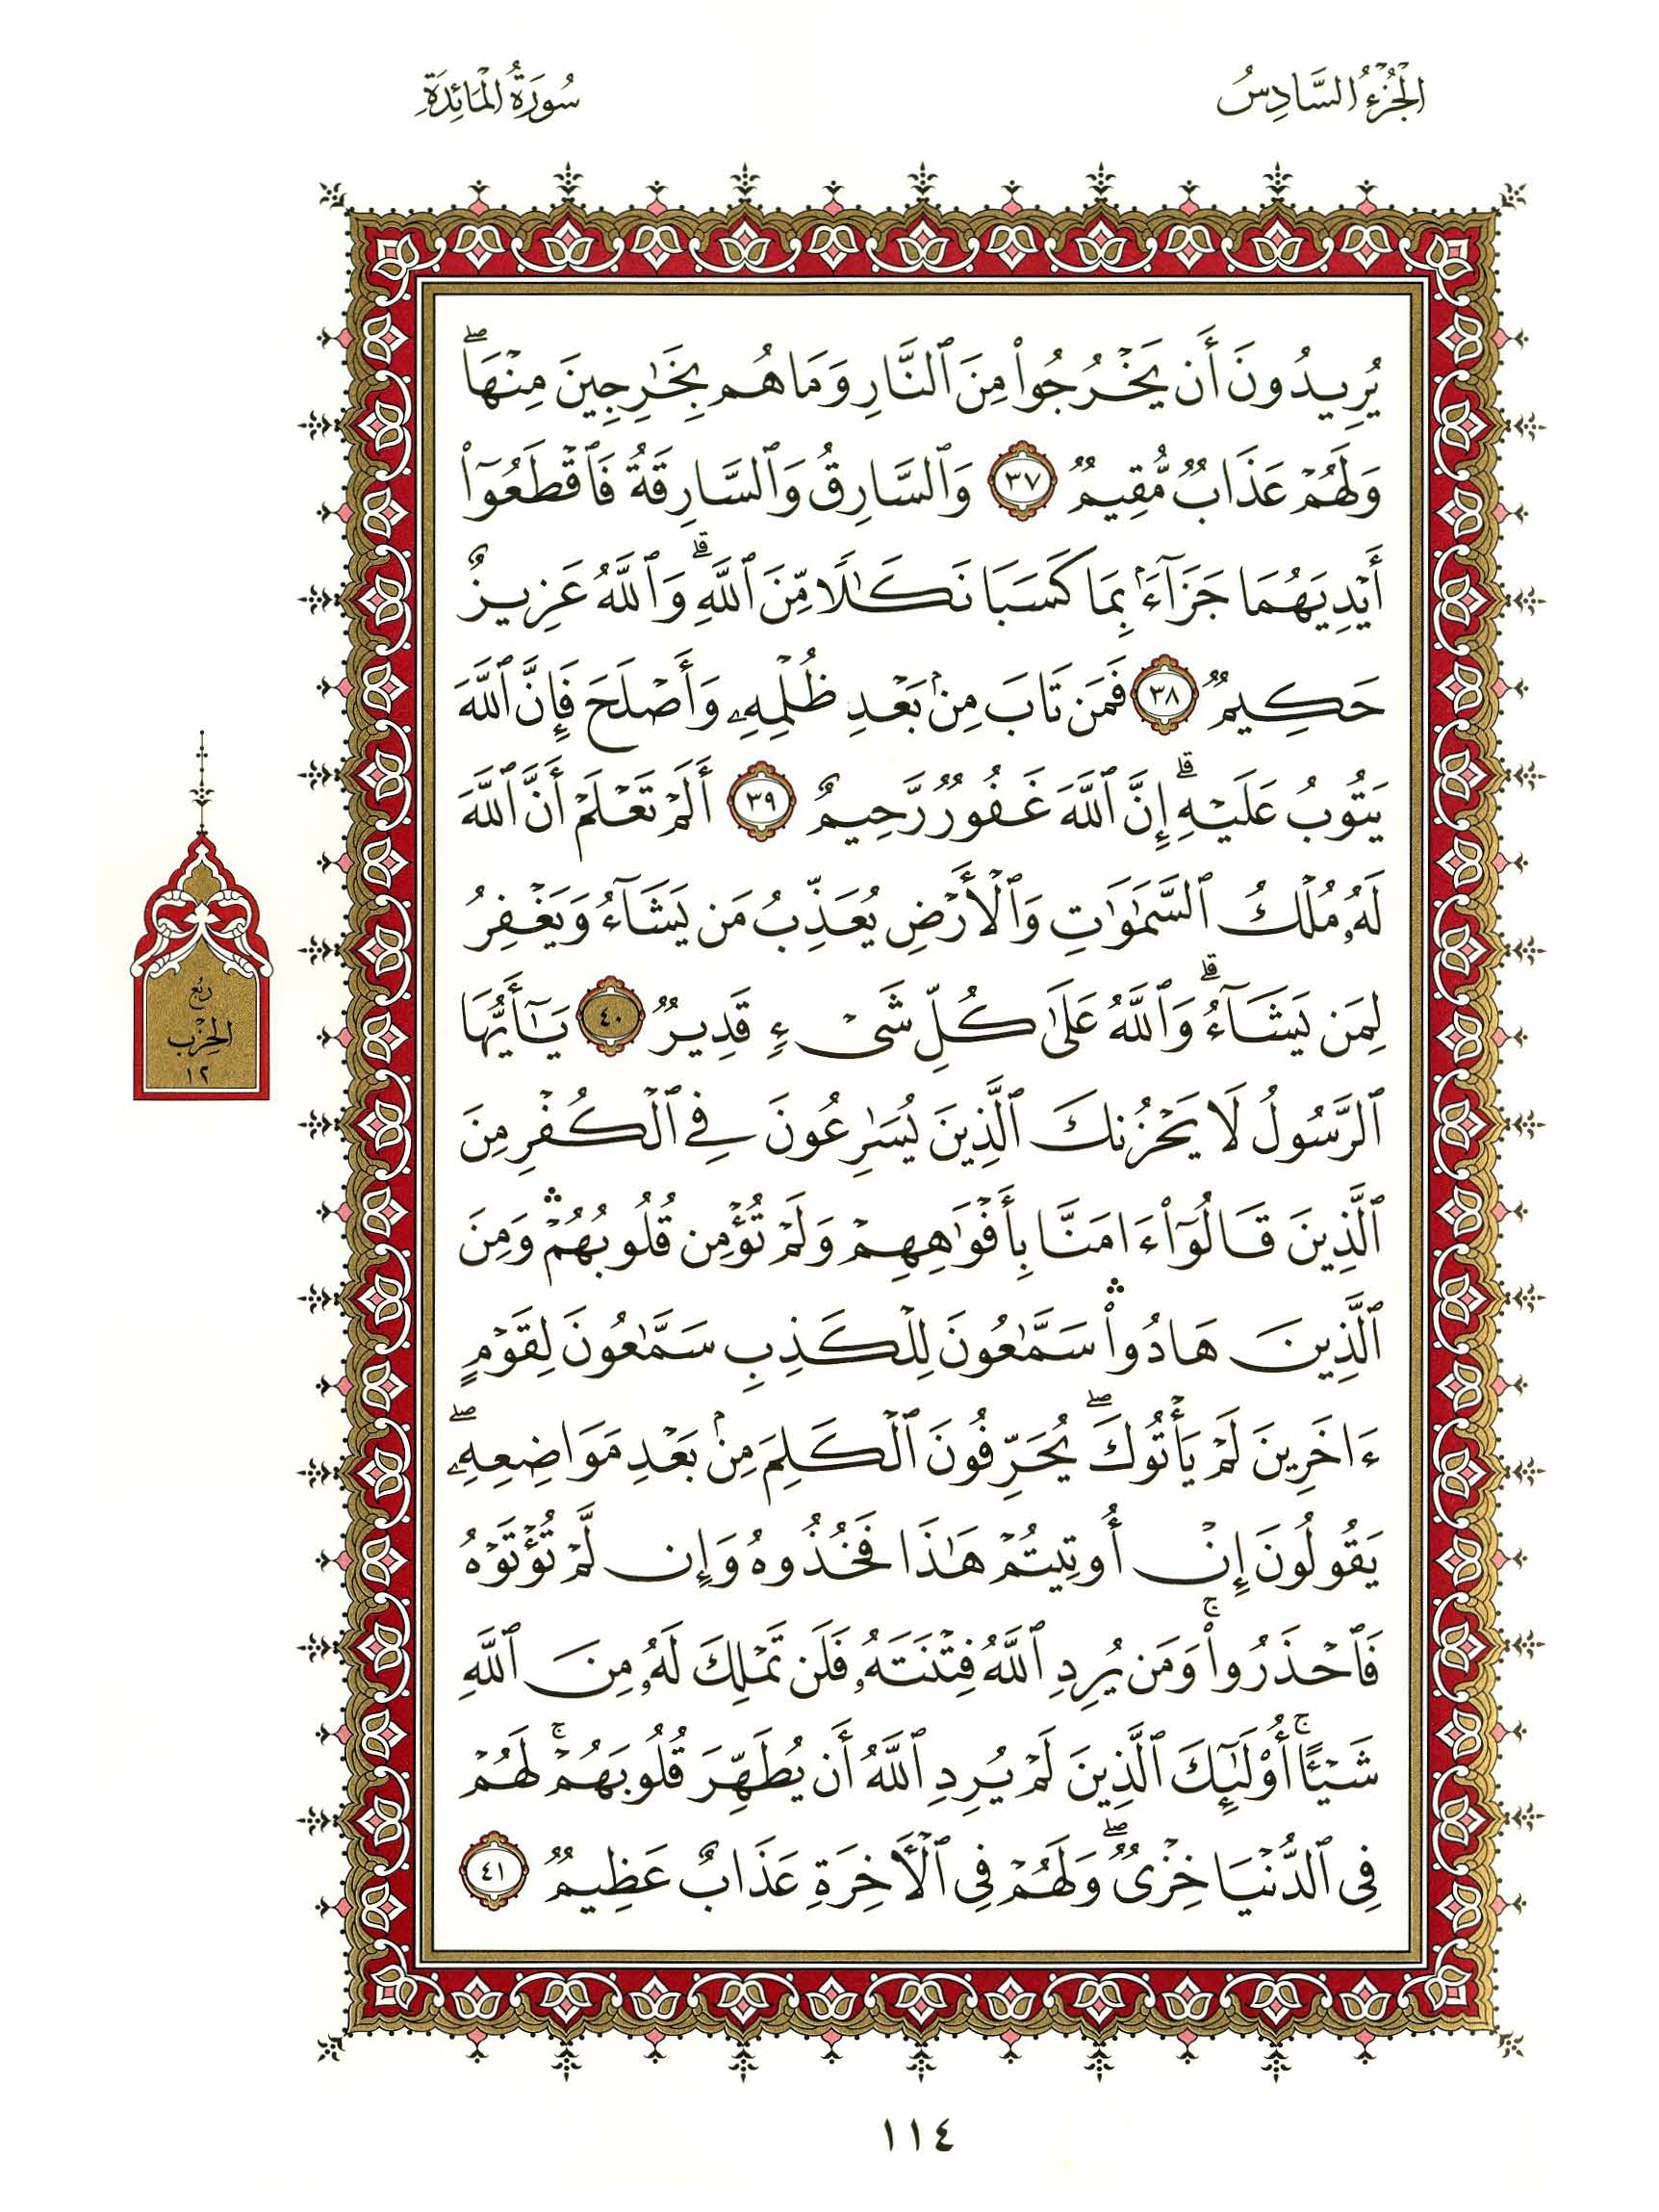 الجُزْءُ السَّادِسُ
سُورَةُ المَائِدَةِ
يُرِيدُونَ أَن يَخْرُجُوا۟ مِنَ ٱلنَّارِ وَمَا هُم بِخَٰرِجِينَ مِنْهَا ۖ
وَلَهُمْ عَذَابٌ مُّقِيمٌ ٣٧ وَٱلسَّارِقُ وَٱلسَّارِقَةُ فَٱقْطَعُوٓا۟
أَيْدِيَهُمَا جَزَآءًۢ بِمَا كَسَبَا نَكَٰلًا مِّنَ ٱللَّهِ ۗ وَٱللَّهُ عَزِيزٌ
حَكِيمٌ ٣٨ فَمَن تَابَ مِنۢ بَعْدِ ظُلْمِهِۦ وَأَصْلَحَ فَإِنَّ ٱللَّهَ
يَتُوبُ عَلَيْهِ ۗ إِنَّ ٱللَّهَ غَفُورٌ رَّحِيمٌ ٣٩ أَلَمْ تَعْلَمْ أَنَّ ٱللَّهَ
لَهُۥ مُلْكُ ٱلسَّمَٰوَٰتِ وَٱلْأَرْضِ يُعَذِّبُ مَن يَشَآءُ وَيَغْفِرُ
لِمَن يَشَآءُ ۗ وَٱللَّهُ عَلَىٰ كُلِّ شَىْءٍ قَدِيرٌ ٤٠ يَٰٓأَيُّهَا
ٱلرَّسُولُ لَا يَحْزُنكَ ٱلَّذِينَ يُسَٰرِعُونَ فِى ٱلْكُفْرِ مِنَ
ٱلَّذِينَ قَالُوٓا۟ ءَامَنَّا بِأَفْوَٰهِهِمْ وَلَمْ تُؤْمِن قُلُوبُهُمْ ۛ وَمِنَ
ٱلَّذِينَ هَادُوا۟ ۛ سَمَّٰعُونَ لِلْكَذِبِ سَمَّٰعُونَ لِقَوْمٍ
ءَاخَرِينَ لَمْ يَأْتُوكَ ۖ يُحَرِّفُونَ ٱلْكَلِمَ مِنۢ بَعْدِ مَوَاضِعِهِۦ ۖ
يَقُولُونَ إِنْ أُوتِيتُمْ هَٰذَا فَخُذُوهُ وَإِن لَّمْ تُؤْتَوْهُ
فَٱحْذَرُوا۟ ۚ وَمَن يُرِدِ ٱللَّهُ فِتْنَتَهُۥ فَلَن تَمْلِكَ لَهُۥ مِنَ ٱللَّهِ
شَيْـًٔا ۚ أُو۟لَٰٓئِكَ ٱلَّذِينَ لَمْ يُرِدِ ٱللَّهُ أَن يُطَهِّرَ قُلُوبَهُمْ ۚ لَهُمْ
فِى ٱلدُّنْيَا خِزْىٌ ۖ وَلَهُمْ فِى ٱلْأَخِرَةِ عَذَابٌ عَظِيمٌ ٤١
رُبُع
الحِزْب
١٢
١١٤